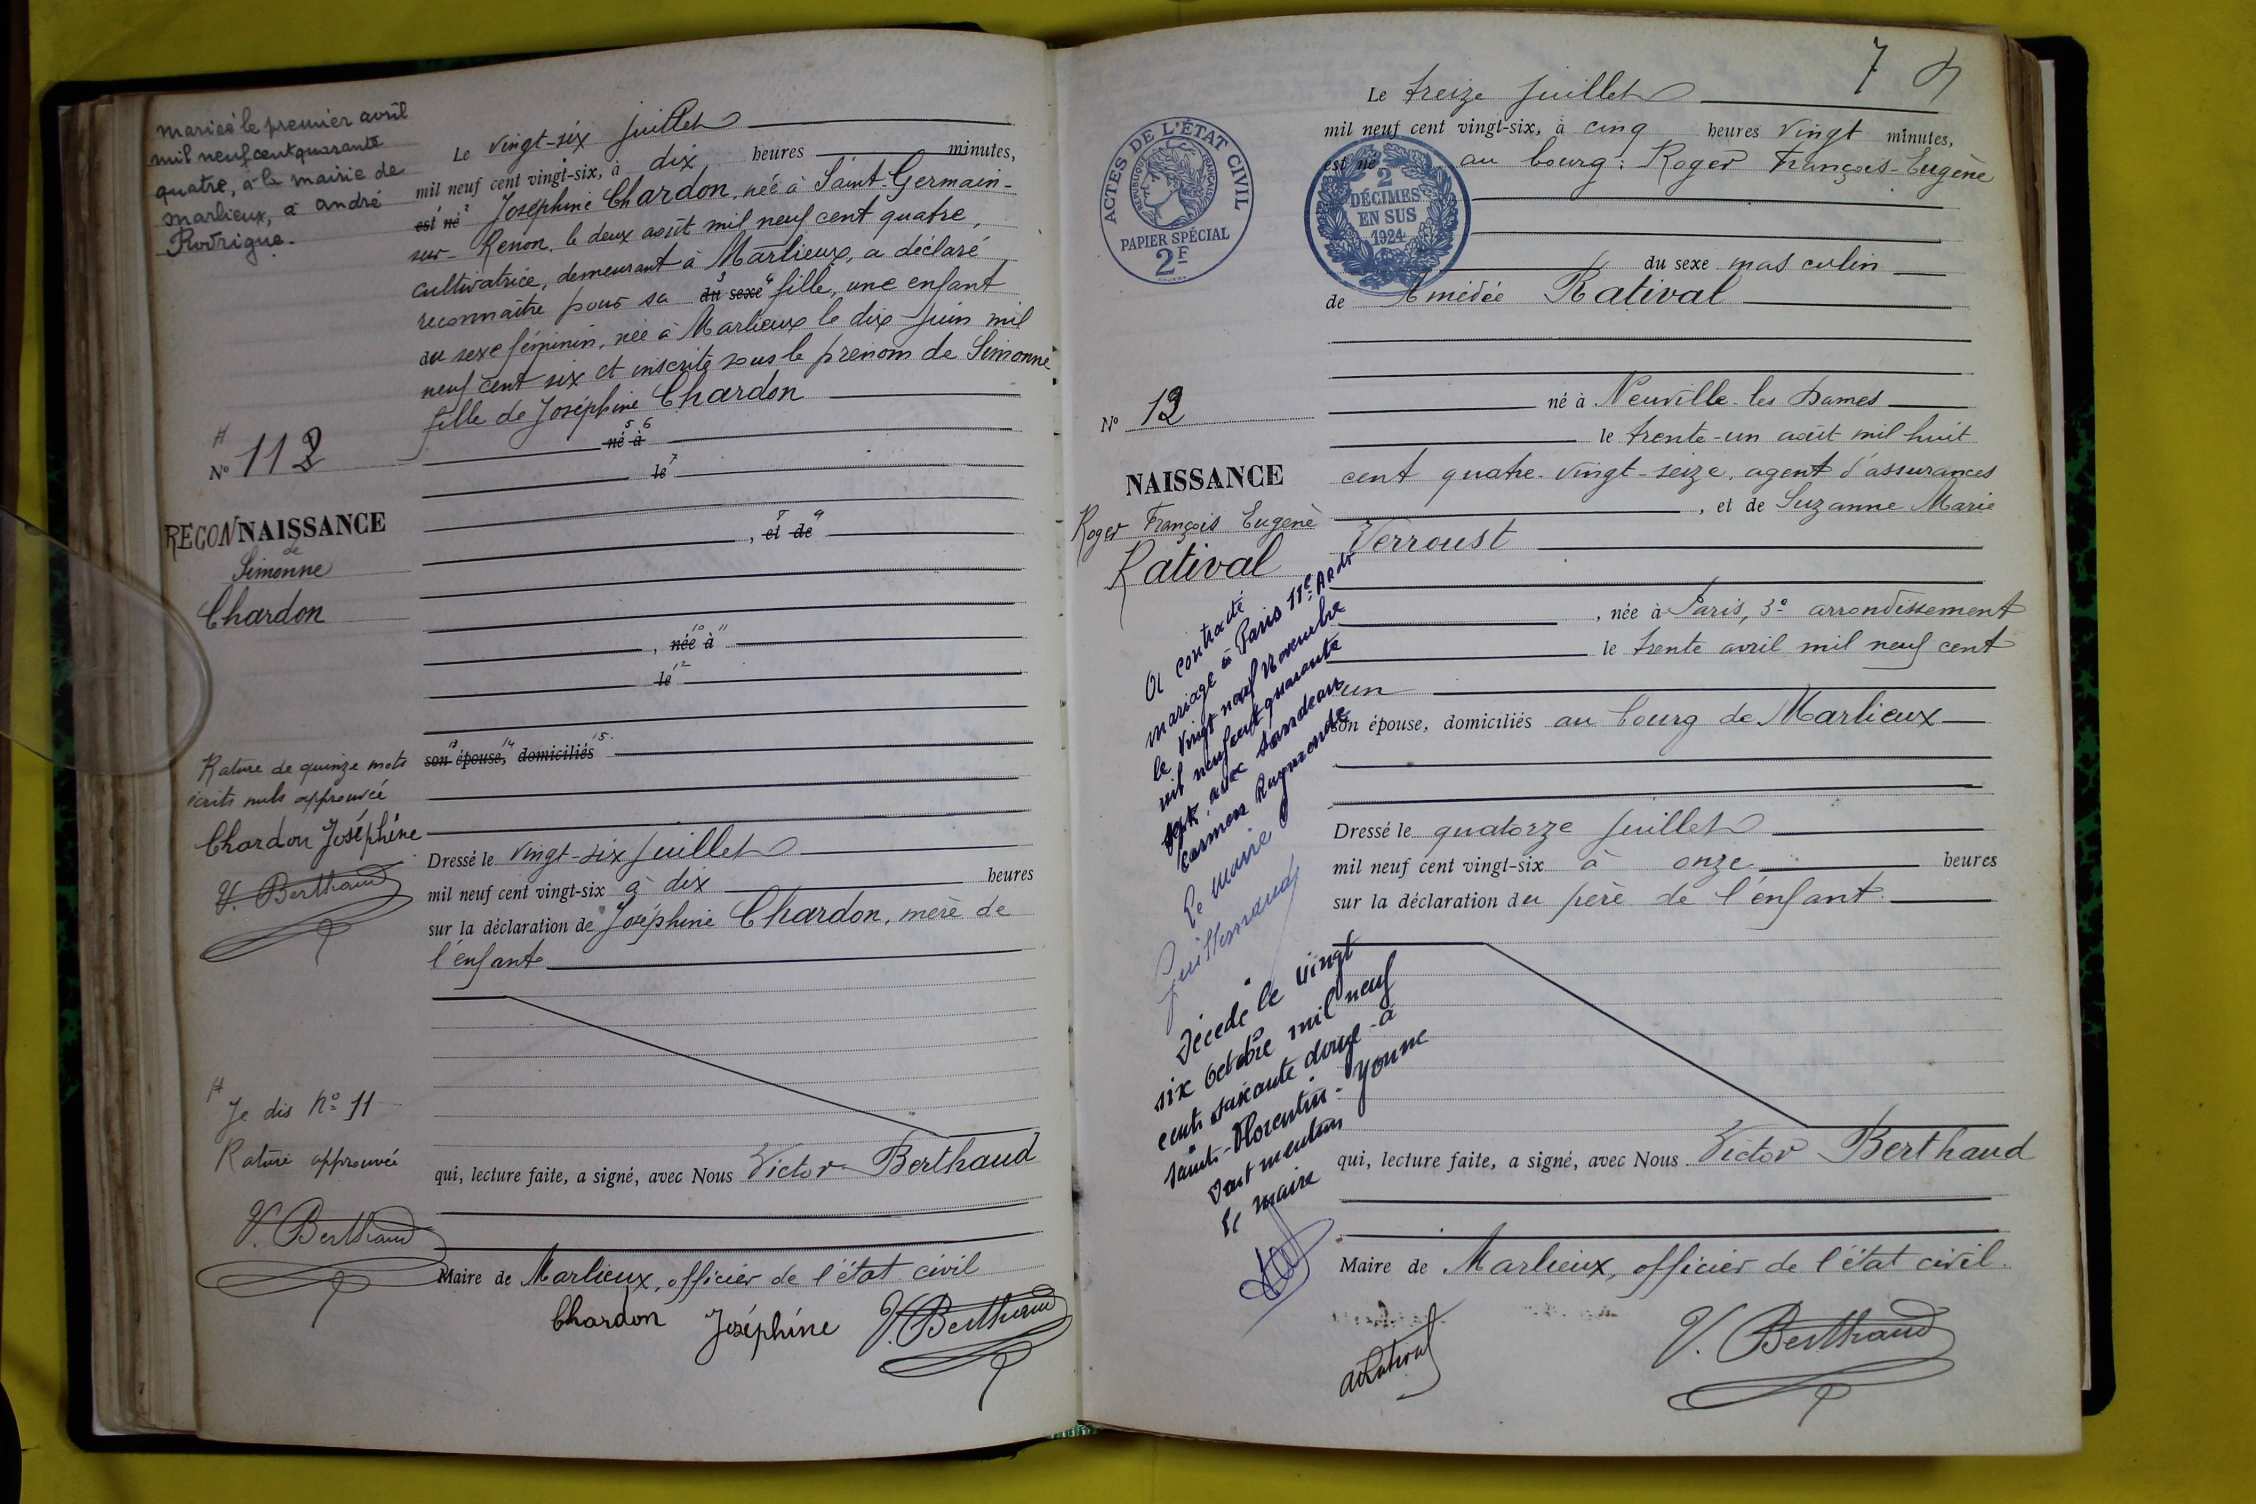 mariée le premier avril
mil neuf cent quarante
quatre, à la mairie de
marlieux, à andré
Rodrigue.
Le vingt-six juillet
mil neuf cent vingt-six, à dix heures minutes,
est né Joséphine Chardon, née à Saint-Germain-
sur-Renon, le deux août mil neuf cent quatre,
cultivatrice, demeurant à Marlieux, a déclaré
reconnaître pour sa du sexe fille, une enfant
du sexe féminin, née à Marlieux le dix juin mil
neuf cent six et inscrite sous le prénom de Simonne
fille de Joséphine Chardon
né à
le
, et de
, née à
le
son épouse, domiciliés
N° 112
RECONNAISSANCE
de
Simonne
Chardon
Rature de quinze mots
écrits nuls approuvée
Chardon Joséphine
V. Berthaud
Dressé le vingt-six juillet
mil neuf cent vingt-six à dix heures
sur la déclaration de Joséphine Chardon, mère de
l'enfant
Je dis N° 11
Rature approuvée
V. Berthaud
qui, lecture faite, a signé, avec Nous Victor Berthaud
Maire de Marlieux, officier de l'état civil
Chardon Joséphine V. Berthaud
7
ACTES DE L'ÉTAT CIVIL
RÉPUBLIQUE FRANÇAISE
PAPIER SPÉCIAL
2F
2
DÉCIMES
EN SUS
1924
Le treize juillet
mil neuf cent vingt-six, à cinq heures vingt minutes,
est né au bourg : Roger François-Eugène
du sexe masculin
de Amédée Ratival
né à Neuville-les-Dames
le trente-un août mil huit
cent quatre-vingt-seize, agent d'assurances
, et de Suzanne Marie
Verroust
, née à Paris, 3e arrondissement
le trente avril mil neuf cent
un
son épouse, domiciliés au bourg de Marlieux
N° 12
NAISSANCE
Roger François Eugène
Ratival
A contracté
mariage à Paris 11e Aadr
le vingt neuf Novembre
mil neuf cent quarante
sept, avec
Carmen Raymonde
Le maire
Guillermaud
Décédé le vingt
six Octobre mil neuf
cent soixante douze à
Saint-Florentin - Yonne
Dont mention
Le maire
Dressé le quatorze juillet
mil neuf cent vingt-six à onze heures
sur la déclaration du père de l'enfant
qui, lecture faite, a signé, avec Nous Victor Berthaud
Maire de Marlieux, officier de l'état civil.
aRatival V. Berthaud